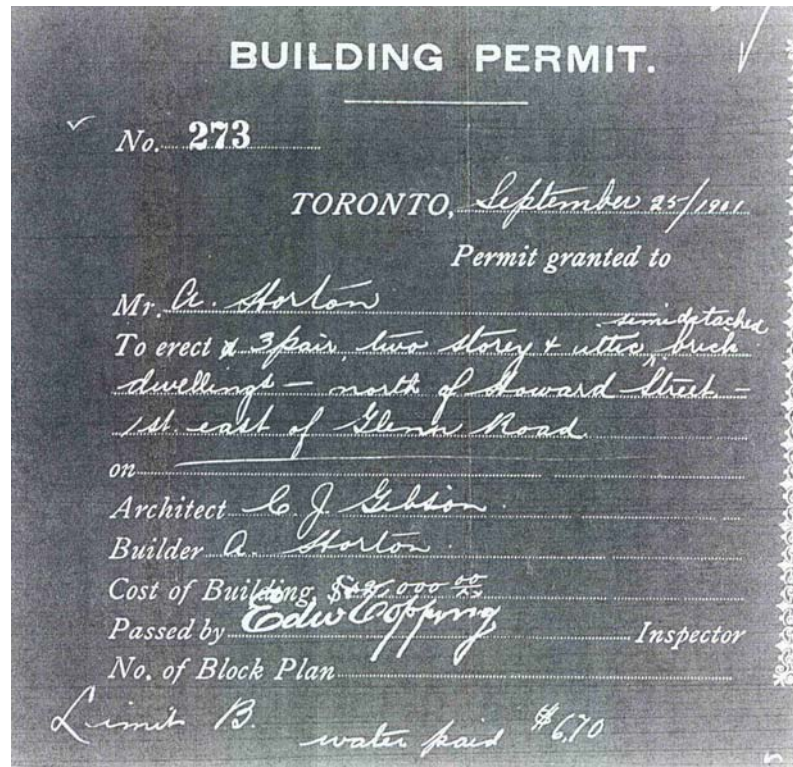 BUILDING PERMIT.
No. 273
TORONTO, September 25/1901
Permit granted to
Mr. A. Horton
To erect 3 pair, two storey & attic semidetached brick
dwellings — north of Howard Street —
1st. east of Glenn Road
on
Architect C. J. Gibson.
Builder A. Horton.
Cost of Building, $ 000 00/xx
Passed by Edw Copping Inspector
No. of Block Plan
Limit B.
water paid $6.70